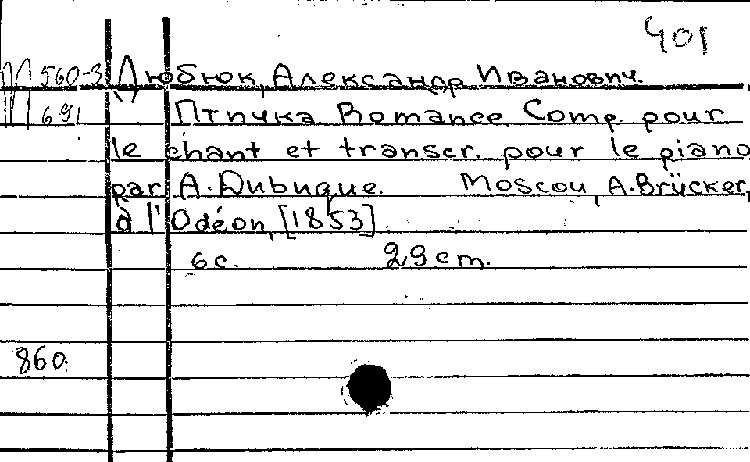 401
М 560-3 Дюбюк, Александр Иванович.
691 Птичка Romance Comp. pour
le chant et transcr. pour le piano
par A. Dubuque. Moscou, A. Brücker,
à l'Odéon, [1853]
6 с. 29 cm.
860.